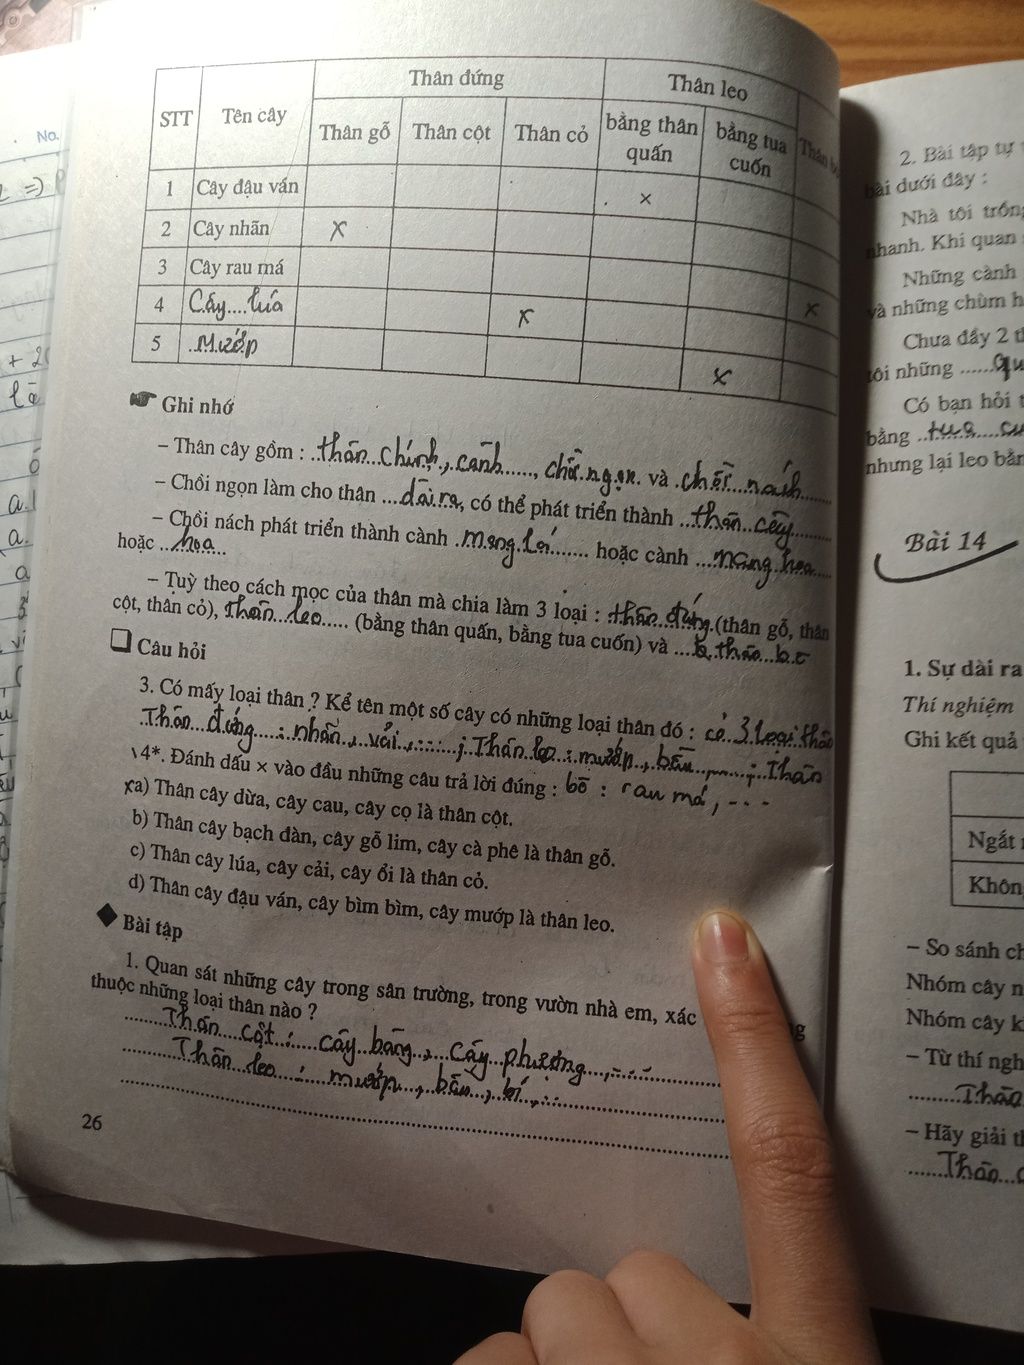 No.
STT Tên cây Thân đứng Thân leo
Thân gỗ Thân cột Thân cỏ bằng thân quấn bằng tua cuốn Thân
1 Cây đậu ván ×
2 Cây nhãn x
3 Cây rau má x
4 Cây....lúa x
5 ..Mướp x
☛ Ghi nhớ
– Thân cây gồm : ..thân...chính.,.cành......, chồi.ngọn. và .chồi...nách.......
– Chồi ngọn làm cho thân ...dài ra, có thể phát triển thành ...thân...cây........
– Chồi nách phát triển thành cành .mang.lá....... hoặc cành ...mang.hoa....
hoặc ..hoa...
– Tuỳ theo cách mọc của thân mà chia làm 3 loại : thân.đứng.(thân gỗ, thân
cột, thân cỏ), Thân..leo..... (bằng thân quấn, bằng tua cuốn) và ......thân...bò
❑ Câu hỏi
3. Có mấy loại thân ? Kể tên một số cây có những loại thân đó : có.3.loại.thân
.Thân..đứng....:.nhãn.,.vải.,....; Thân leo.:.mướp., bầu.,....; Thân
4*. Đánh dấu × vào đầu những câu trả lời đúng : bò : rau má, ...
xa) Thân cây dừa, cây cau, cây cọ là thân cột.
b) Thân cây bạch đàn, cây gỗ lim, cây cà phê là thân gỗ.
c) Thân cây lúa, cây cải, cây ổi là thân cỏ.
d) Thân cây đậu ván, cây bìm bìm, cây mướp là thân leo.
◆ Bài tập
1. Quan sát những cây trong sân trường, trong vườn nhà em, xác
thuộc những loại thân nào ?
.......Thân...cột.:.....cây bàng.,..cây..phượng....,......
.......Thân...leo...:...mướp..., bầu.., bí.,...
26
2. Bài tập tự
bài dưới đây :
Nhà tôi trồng
nhanh. Khi quan
Những cành
và những chùm h
Chưa đầy 2 th
tôi những ......qu
Có bạn hỏi t
bằng ..tua...cu
nhưng lại leo bằn
Bài 14
1. Sự dài ra
Thí nghiệm
Ghi kết quả
Ngắt
Khôn
– So sánh ch
Nhóm cây n
Nhóm cây k
– Từ thí ngh
.........Thân
– Hãy giải th
......Thân